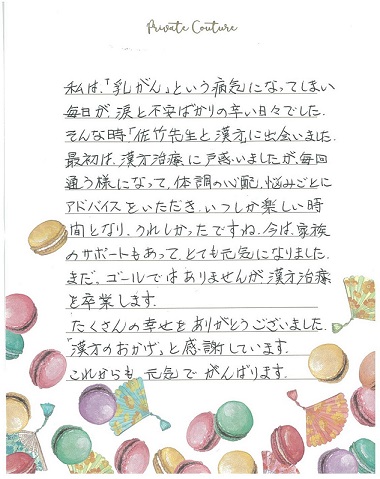 Private Couture
私は、「乳がん」という病気になってしまい
毎日が、涙と不安ばかりの辛い日々でした。
そんな時「佐竹先生と漢方」に出会いました。
最初は、漢方治療に戸惑いましたが、毎回
通う様になって、体調の心配、悩みごとに
アドバイスをいただき、いつしか楽しい時
間となり、うれしかったですね。今は、家族
のサポートもあって、とても元気になりました。
まだ、ゴールではありませんが漢方治療
を卒業します。
たくさんの幸せをありがとうございました。
「漢方のおかげ」と感謝しています。
これからも、元気でがんばります。